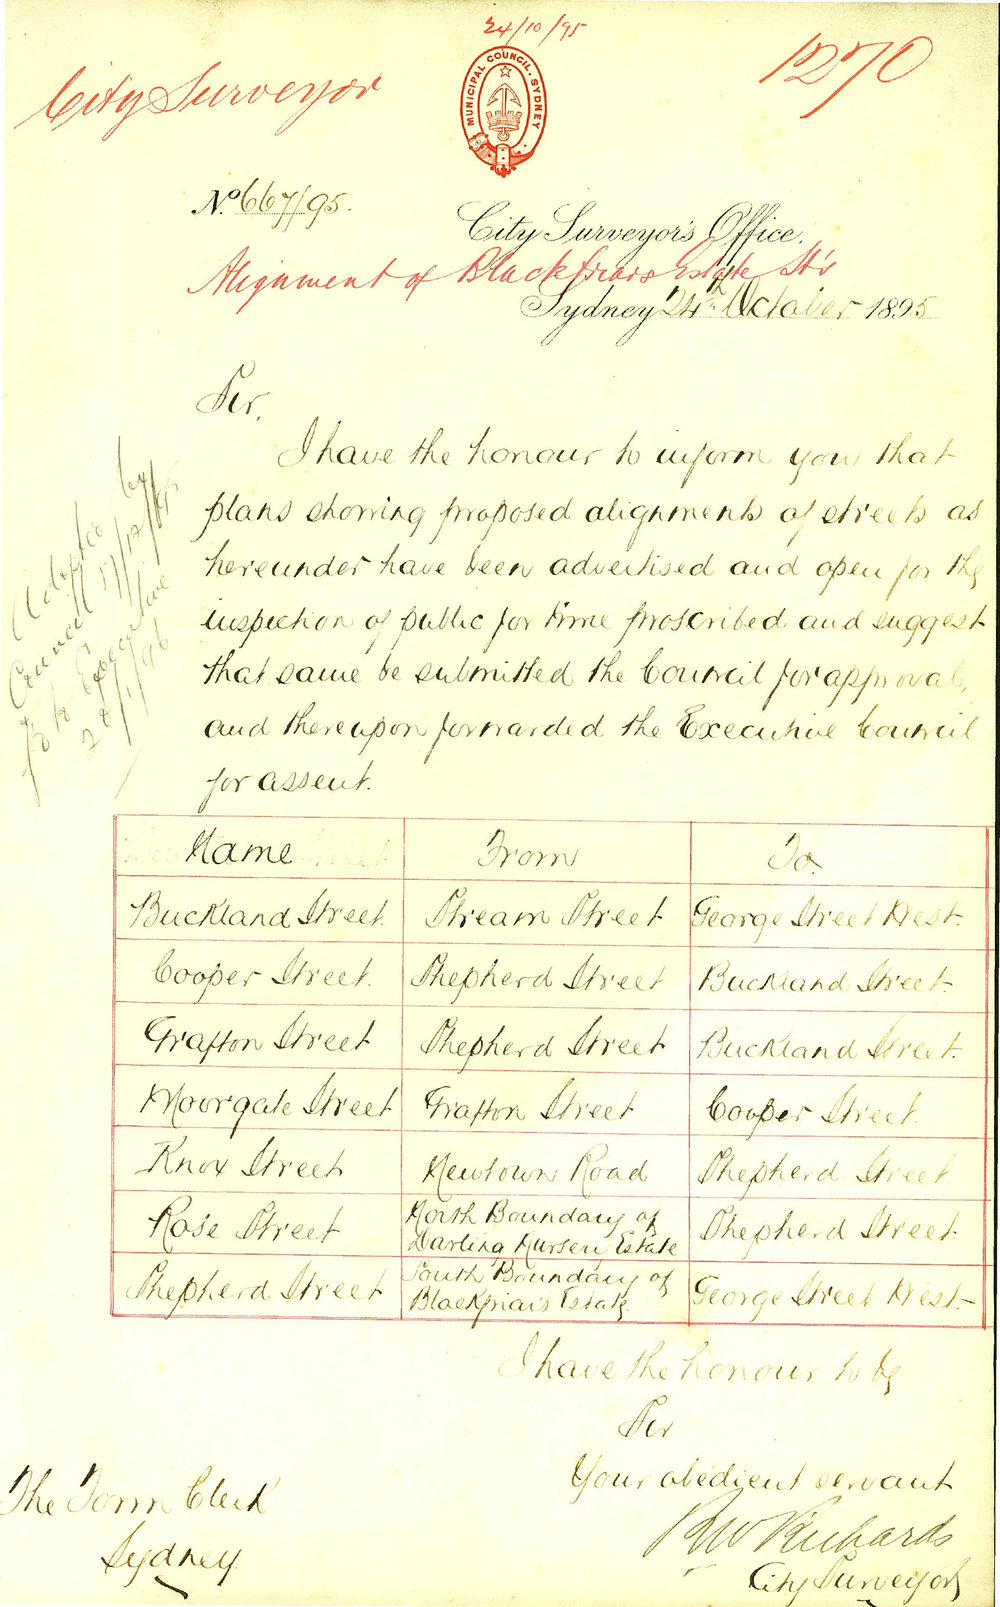 24/10/95
City Surveyor
1270
MUNICIPAL COUNCIL. SYDNEY
No. 667/95.
City Surveyor's Office.
Alignment of Blackfriars Estate Sts
Sydney 24th October 1895
Sir,
I have the honour to inform you that
plans showing proposed alignments of streets as
hereunder have been advertised and open for the
inspection of public for time proscribed and suggest
that same be submitted the Council for approval,
and thereupon forwarded the Executive Council
for assent.
Adopted by
Council 17/12/95
To Executive
20/1/96
Name From To.
Buckland Street. Stream Street George Street West.
Cooper Street. Shepherd Street Buckland Street.
Grafton Street Shepherd Street Buckland Street.
Moorgate Street Grafton Street Cooper Street.
Knox Street Newtown Road Shepherd Street
Rose Street North Boundary of Darling Nursery Estate Shepherd Street.
Shepherd Street South Boundary of Blackfriars Estate George Street West.
I have the honour to be
Sir
Your obedient servant
R W Richards
City Surveyor
The Town Clerk
Sydney